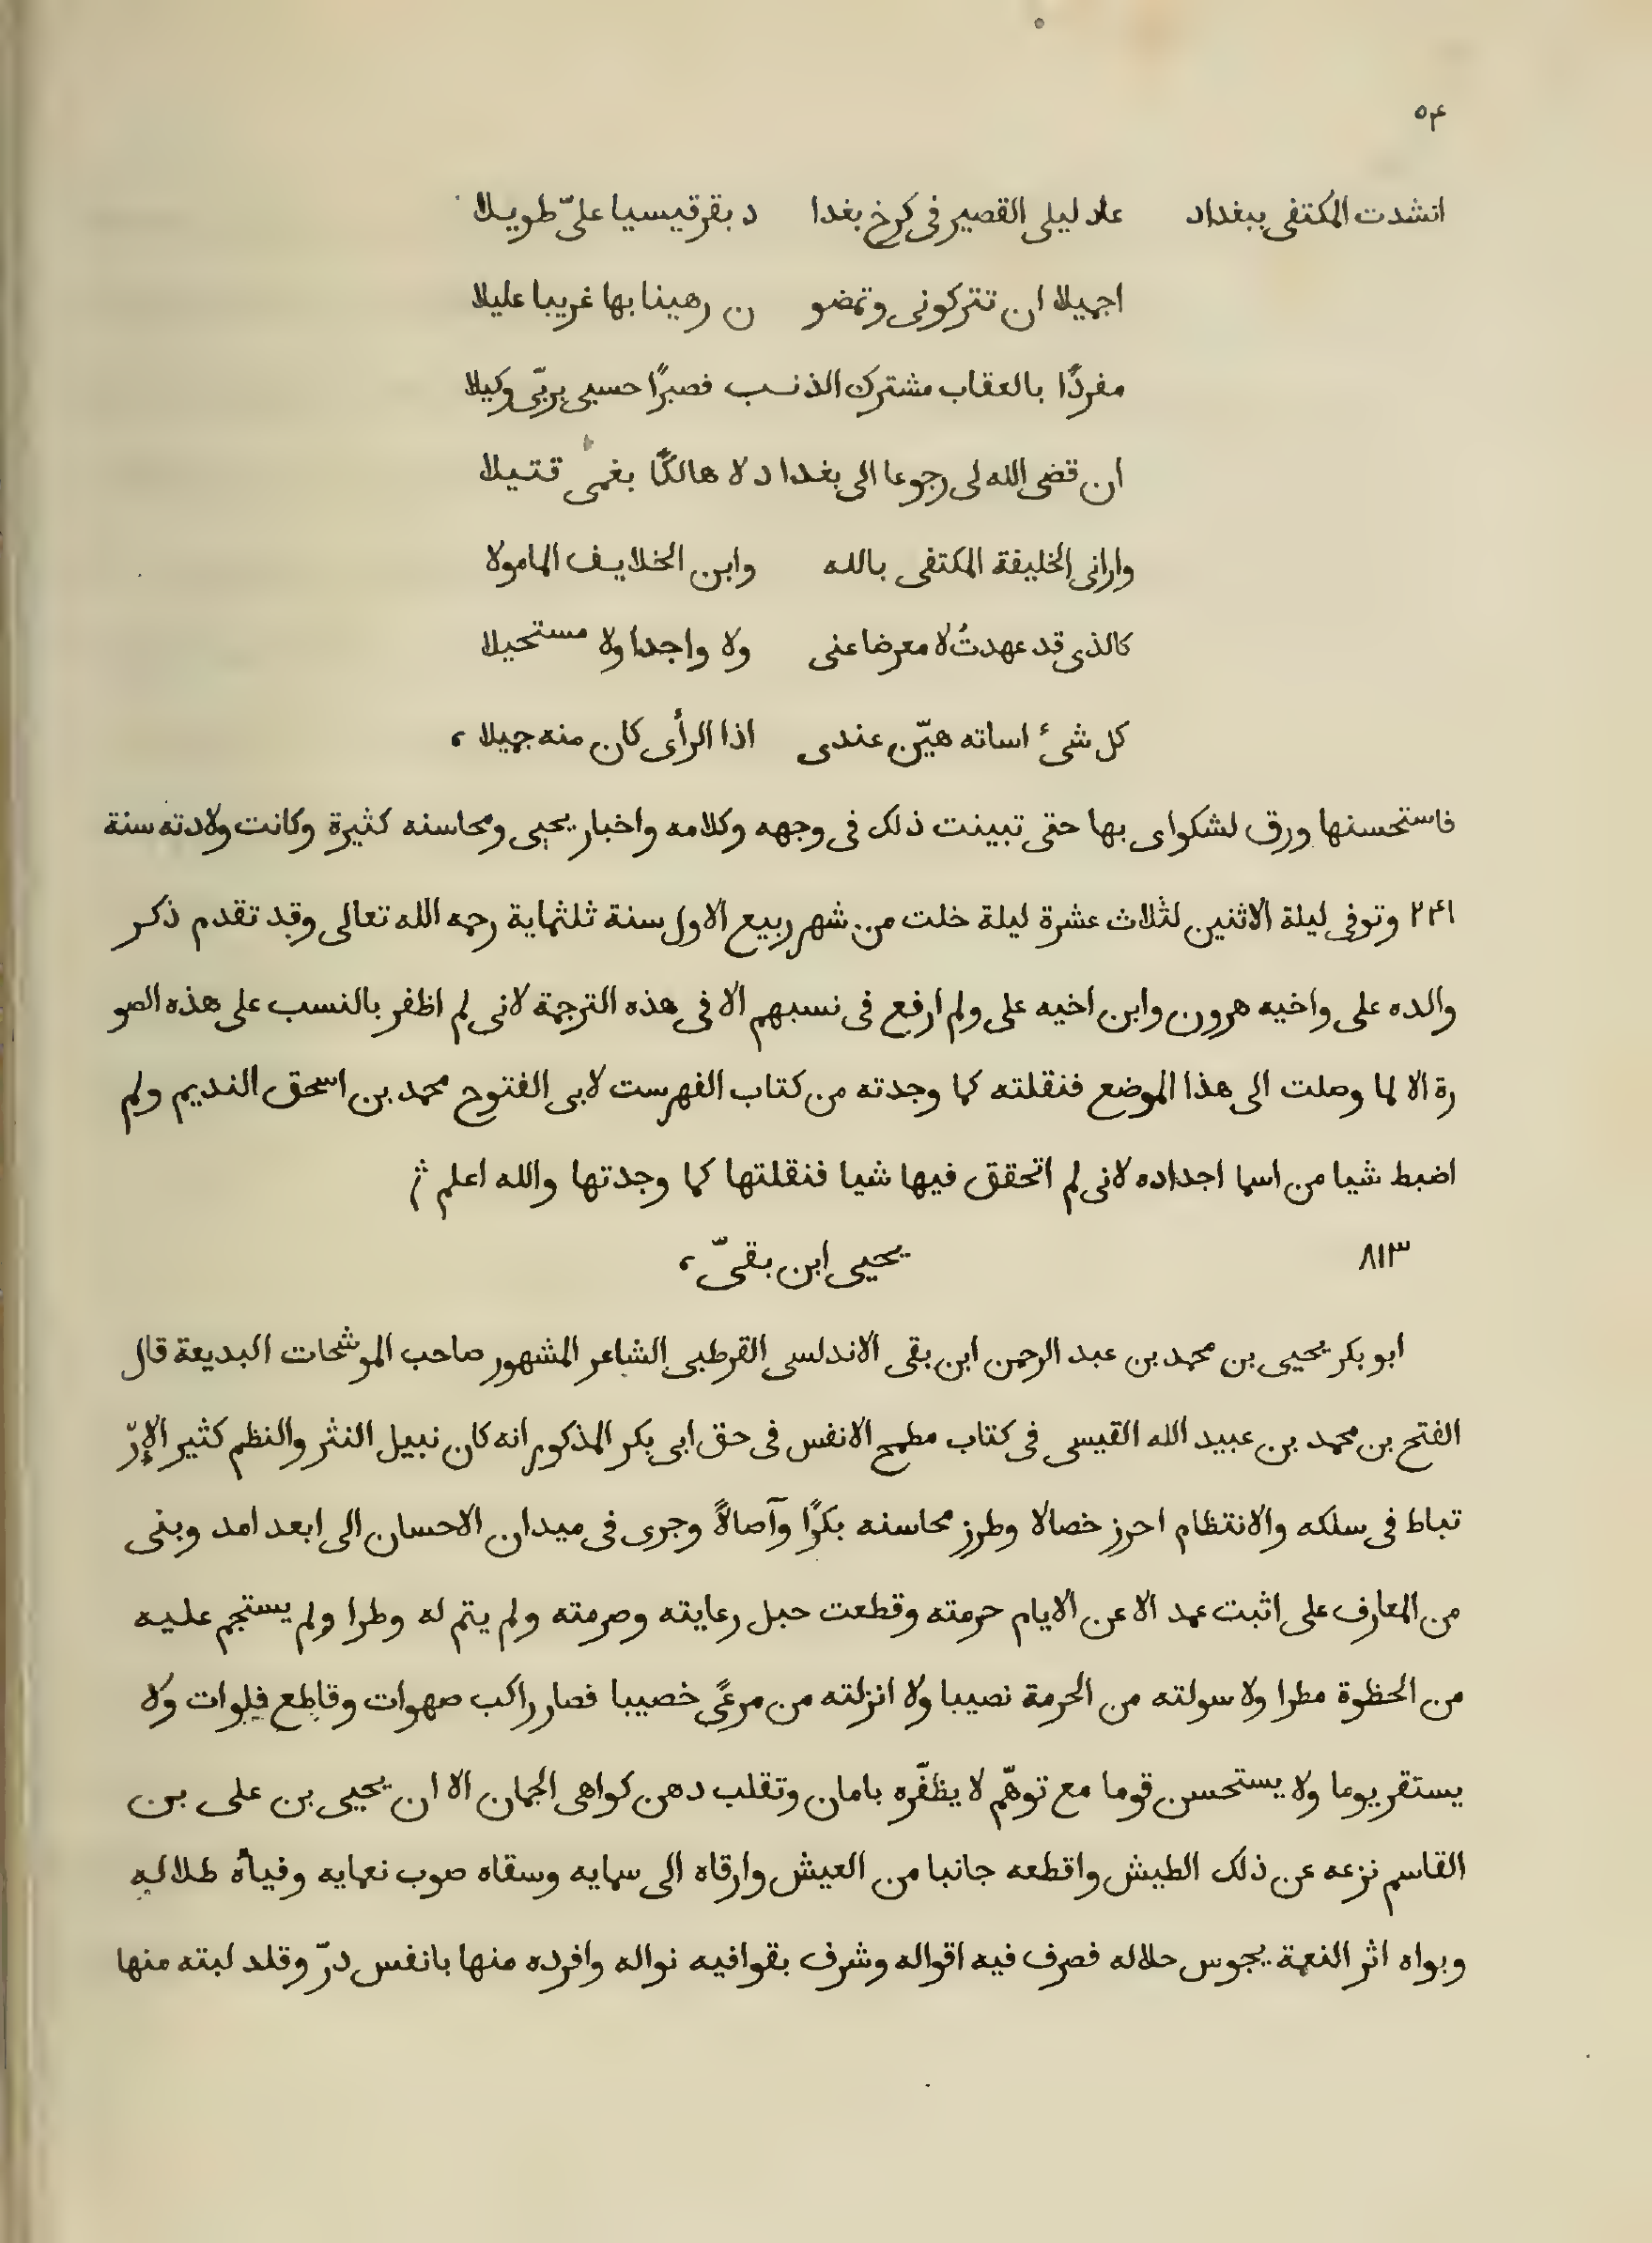 ٥٤
انشدت المكتفى ببغداد عاد ليلى القصير فى كرخ بغدا د بقرقيسيا علىّ طويلا
اجميلا ان تتركونى وتمضو ن رهينا بها غريبا عليلا
مفردًا بالعقاب مشترك الذنب فصبرًا حسبى بربّى وكيلا
ان قضى الله لى رجوعا الى بغداد لا هالكًا بغمى قتيلا
وارانى الخليفة المكتفى بالله وابن الخلايف المامولا
كالذى قد عهدتُ لا معرضا عنى ولا واجدا ولا مستحيلا
كل شىء اساته هيّن عندى اذا الرأى كان منه جميلا ،
فاستحسنها ورق لشكواى بها حتى تبينت ذلك فى وجهه وكلامه واخبار يحيى ومحاسنه كثيرة وكانت ولادته سنة
٢٤١ وتوفى ليلة الاثنين لثلاث عشرة ليلة خلت من شهر ربيع الاول سنة ثلثماية رحمه الله تعالى وقد تقدم ذكر
والده على واخيه هرون وابن اخيه على ولم ارفع فى نسبهم الا فى هذه الترجمة لانى لم اظفر بالنسب على هذه الصو
رة الا لما وصلت الى هذا الموضع فنقلته كما وجدته من كتاب الفهرست لابى الفتوح محمد بن اسحق النديم ولم
اضبط شيا من اسما اجداده لانى لم اتحقق فيها شيا فنقلتها كما وجدتها والله اعلم
٨١٣ يحيى ابن بقىّ ،
ابو بكر يحيى بن محمد بن عبد الرحمن ابن بقى الاندلسى القرطبى الشاعر المشهور صاحب الموشحات البديعة قال
الفتح بن محمد بن عبيد الله القيسى فى كتاب مطمح الانفس فى حق ابى بكر المذكور انه كان نبيل النثر والنظم كثير الإرّ
تباط فى سلكه والانتظام احرز خصالا وطرز محاسنه بكرًا وآصالاً وجرى فى ميدان الاحسان الى ابعد امد وبنى
من المعارف على اثبت عمد الا عن الايام حرمته وقطعت حبل رعايته وصرمته ولم يتم له وطرا ولم يستجم عليه
من الحظوة مطرا ولا سولته من الحرمة نصيبا ولا انزلته من مرعًى خصيبا فصار راكب صهوات وقاطع فلوات ولا
يستقر يوما ولا يستحسن قوما مع توهّم لا يظفّره بامان وتقلب دهن كواهى الجمان الا ان يحيى بن على بن
القاسم نزعه عن ذلك الطيش واقطعه جانبا من العيش وارقاه الى سمايه وسقاه صوب نعمايه وفيأه طلاله
وبواه اثر النعمة يجوس حلاله فصرف فيه اقواله وشرف بقوافيه نواله وافرده منها بانفس درّ وقلد لبته منها